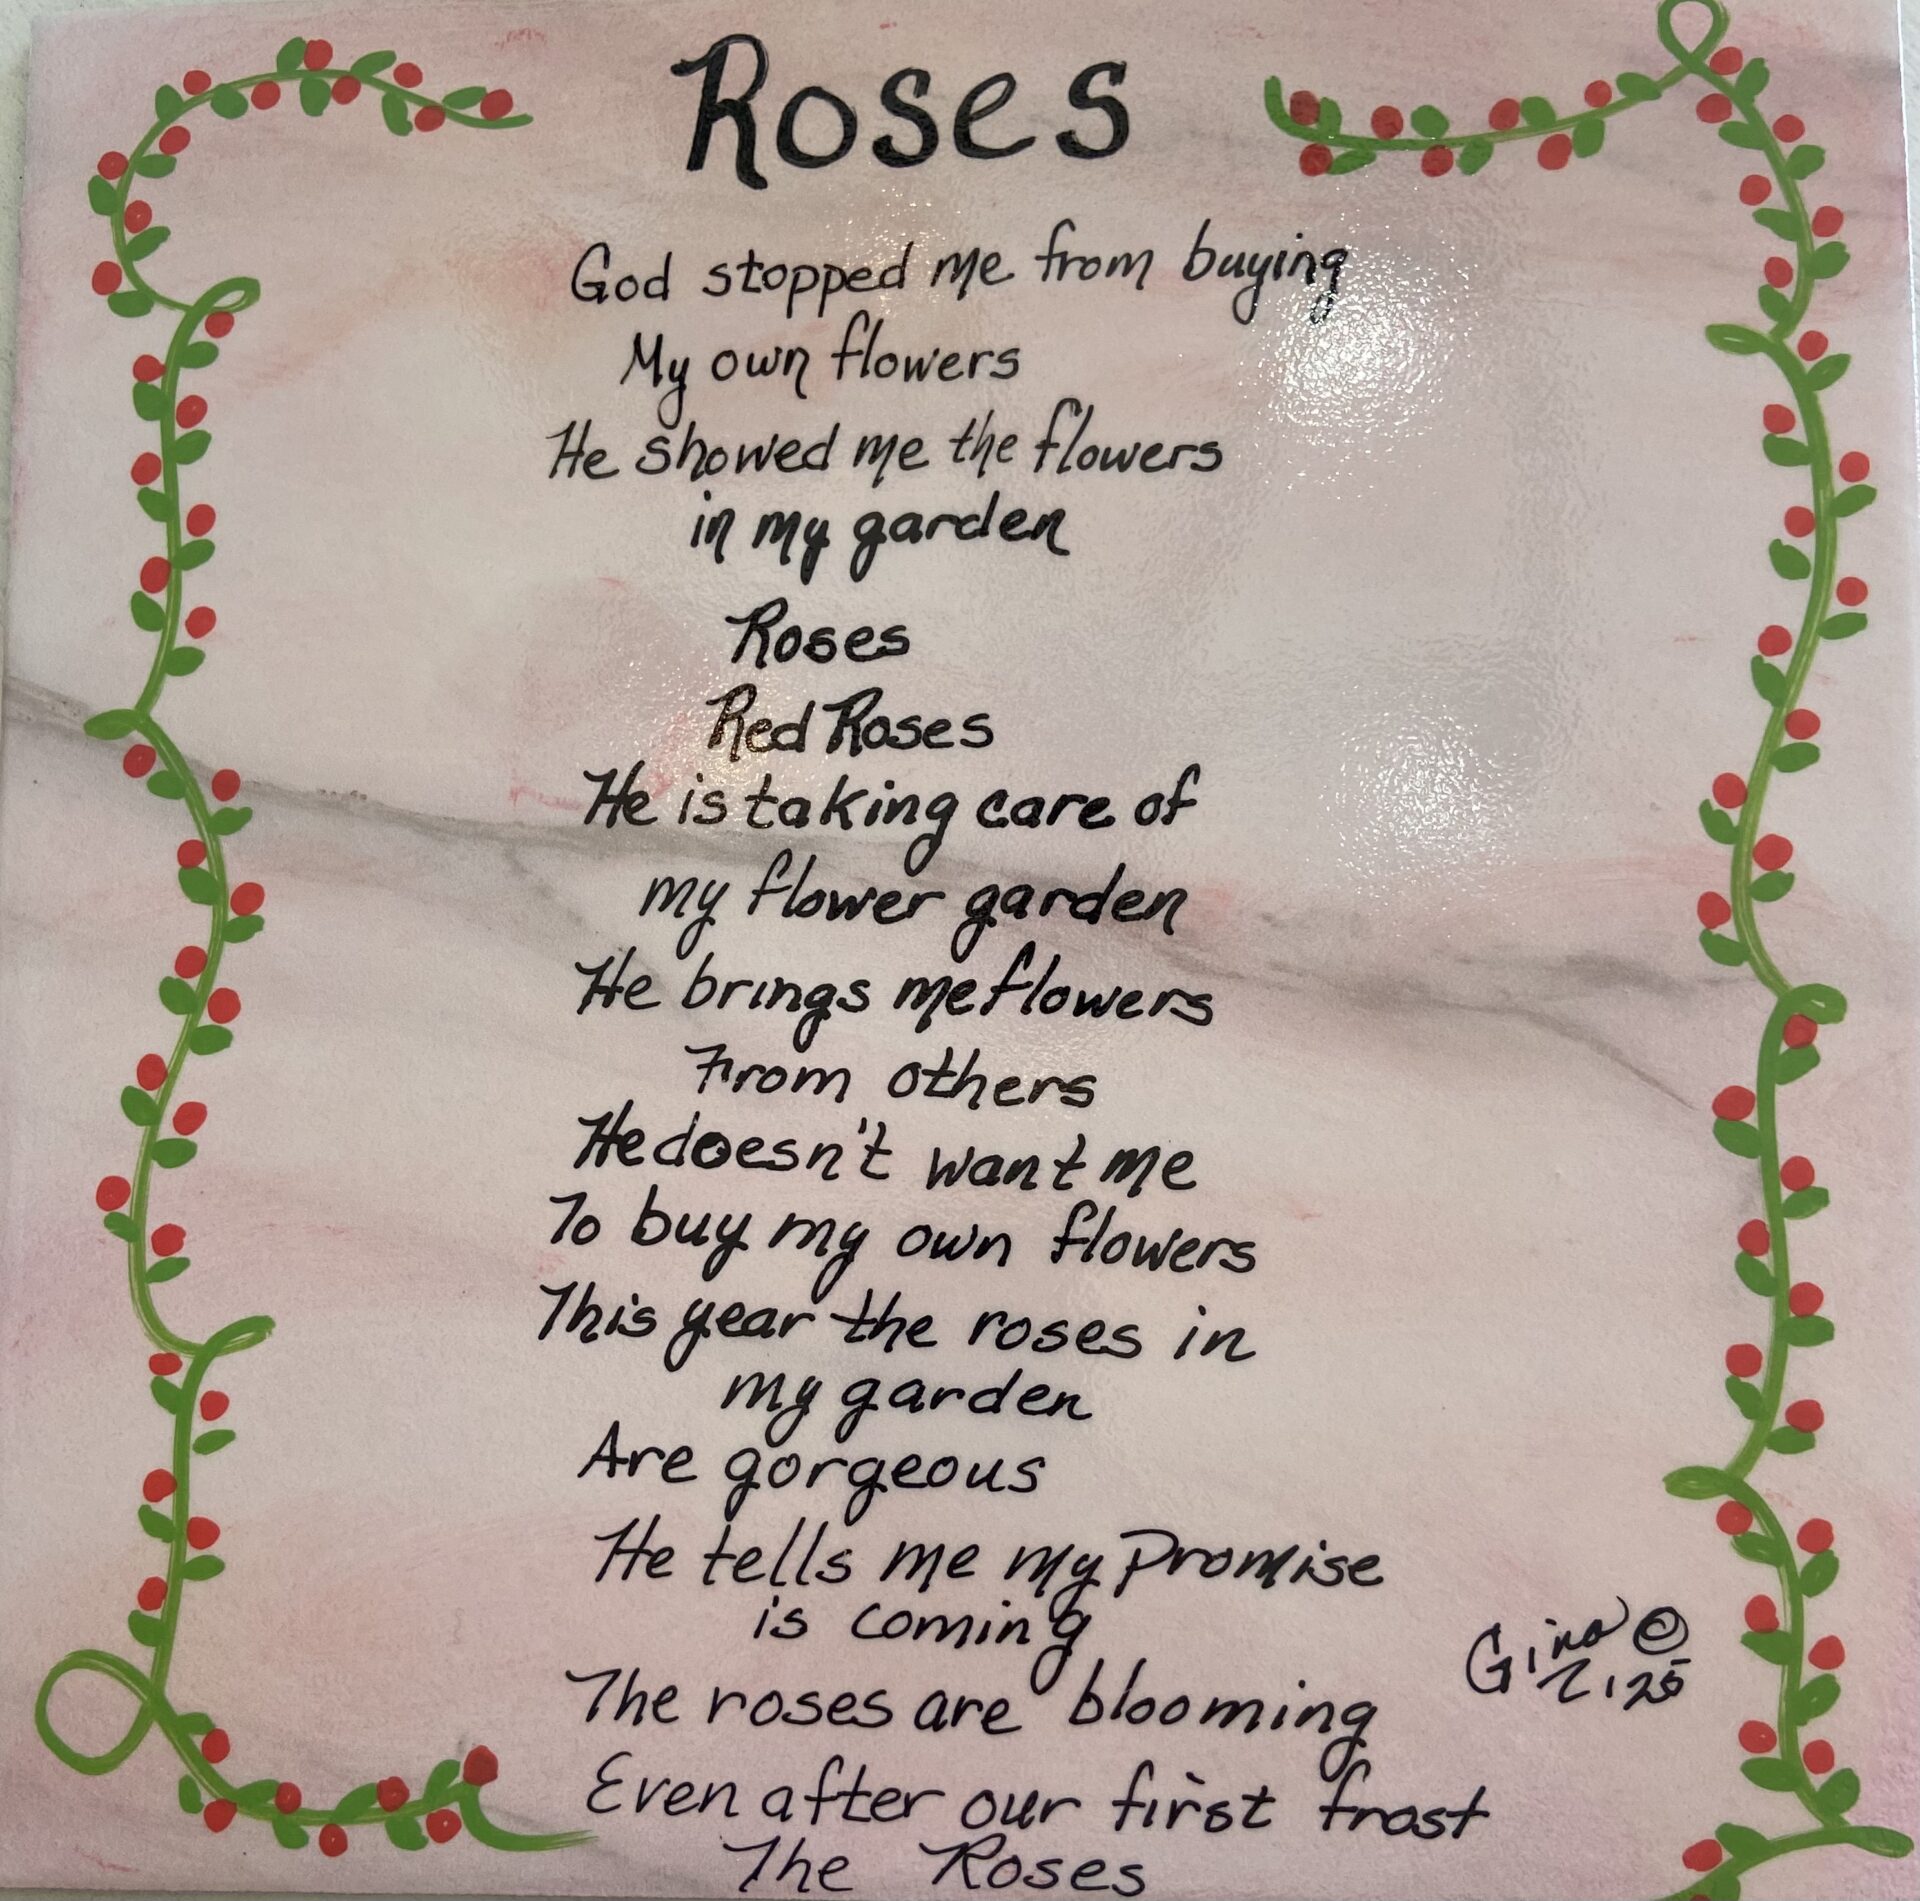 Roses
God stopped me from buying
My own flowers
He showed me the flowers
in my garden
Roses
Red Roses
He is taking care of
my flower garden
He brings me flowers
From others
He doesn't want me
To buy my own flowers
This year the roses in
my garden
Are gorgeous
He tells me my Promise
is coming
The roses are blooming
Even after our first frost
The Roses
Gina ©